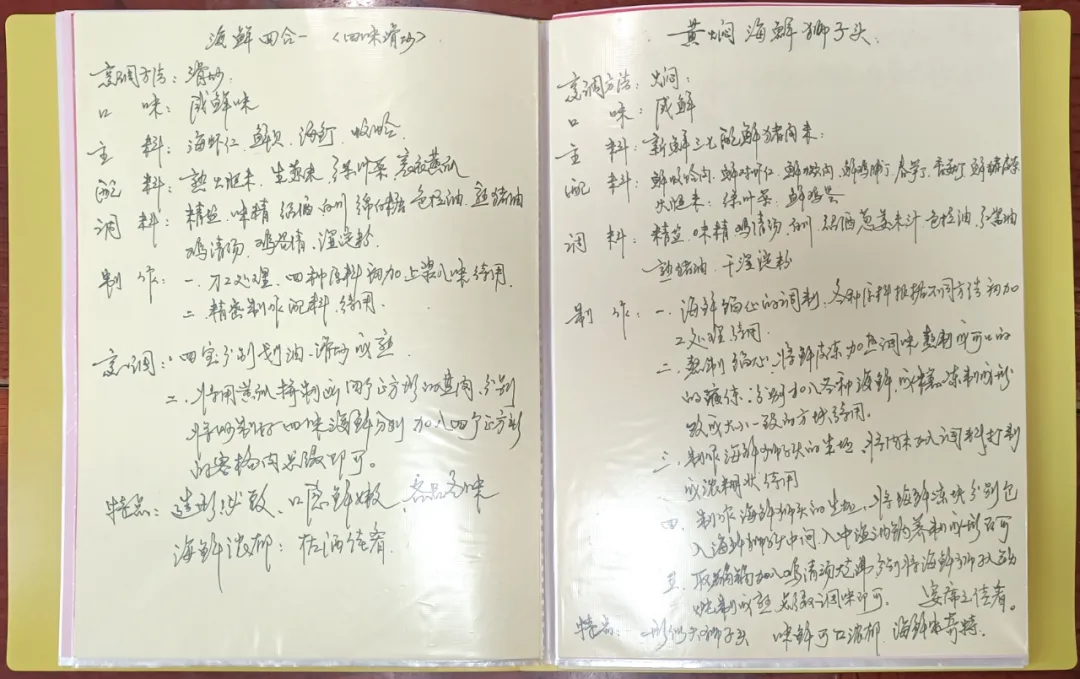 海鲜四合一 〈四味滑炒〉
烹调方法：滑炒.
口 味：咸鲜味
主 料：海虾仁 鲜贝 海
配 料：熟火腿末. 生葱末 绿叶菜 黄瓜
调 料：精盐. 味精 绍酒 绵白糖 色拉油. 熟猪油
鸡清汤. 鸡蛋清. 湿淀粉.
制 作：一. 刀工处理. 四种原料初加上浆入味待用
二. 精密制作配料. 待用.
烹调： 四宝分别划油. 滑炒成熟
二. 将用黄瓜拼制 四个正方形的 分别
将炒制好四味海鲜分别加入四个正方形
的 内点缀即可。
特点：造形 . 口感鲜嫩.
海鲜浓郁：佐酒佳肴.
黄焖海鲜狮子头.
烹调方法：焖：
口 味：咸鲜
主 料：新鲜三七配鲜猪肉末：
配 料：鲜 肉. 鲜 虾仁. 鲜 肉. 鲜 丁. 香菇丁 鲜猪皮
火腿末：绿叶菜. 鲜鸡蛋
调 料：精盐. 味精 鸡清汤. 绍酒葱姜末汁 色拉油.
熟猪油. 干湿淀粉
制 作：一. 海鲜馅心的调制. 各种原料根据不同方法初加
工处理待用.
二. 熬制馅心. 将鲜皮冻加热调味熬制成可口的
的 冻：分别加入各种海鲜. 成 冻制成形
改成大小一致的方块待用。
三. 制作海鲜狮子头的生坯. 将肉末加入调料打制
成浓糊状待用
四. 制作海鲜狮头的生坯. 将海鲜冻块分别包
入海鲜狮头中间. 入中温油 制成形即可
五. 取 锅加入鸡清汤 分别将海鲜狮子头
制成熟 点缀调味即可. 宴席之佳肴。
特点：形似 狮子头 味鲜可口浓郁. 海鲜 奇特.